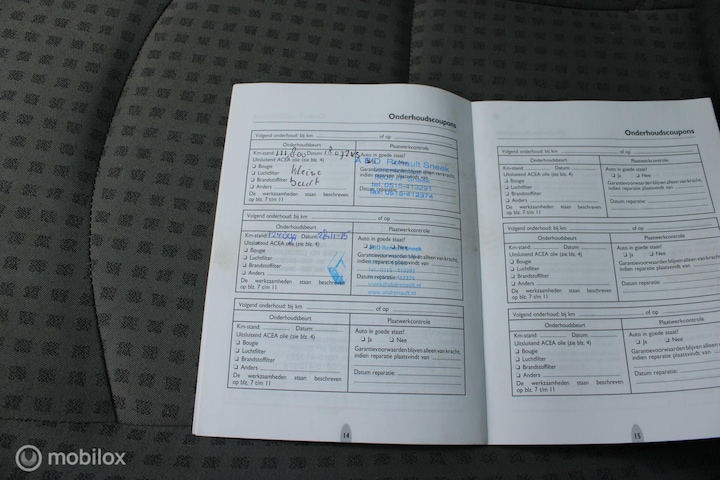 Onderhoudscoupons
Volgend onderhoud: bij km of op
Onderhoudsbeurt Plaatwerkcontrole
Km-stand: 111.800 Datum:
Auto in goede staat?
Uitsluitend ACEA olie (zie blz. 4)
Bougie
Luchtfilter kleine
Brandstoffilter beurt
Anders
Garantievoorwaarden blijven alleen van kracht,
indien reparatie plaatsvindt van
Datum reparatie:
De werkzaamheden staan beschreven
op blz. 7 t/m 11
Renault Sneek
tel. 0515-413291
fax. 0515-412374
Volgend onderhoud: bij km of op
Onderhoudsbeurt Plaatwerkcontrole
Km-stand: Datum: 28-11-15
Auto in goede staat?
Nee
Uitsluitend ACEA olie (zie blz. 4)
Bougie
Luchtfilter
Brandstoffilter
Anders
Garantievoorwaarden blijven alleen van kracht,
indien reparatie plaatsvindt van
Datum reparatie:
De werkzaamheden staan beschreven
op blz. 7 t/m 11
Volgend onderhoud: bij km of op
Onderhoudsbeurt Plaatwerkcontrole
Km-stand: Datum:
Auto in goede staat?
Ja Nee
Uitsluitend ACEA olie (zie blz. 4)
Bougie
Luchtfilter
Brandstoffilter
Anders
Garantievoorwaarden blijven alleen van kracht,
indien reparatie plaatsvindt van
Datum reparatie:
De werkzaamheden staan beschreven
op blz. 7 t/m 11
14
Onderhoudscoupons
Volgend onderhoud: bij km of op
Onderhoudsbeurt Plaatwerkcontrole
Km-stand: Datum:
Auto in goede staat?
Ja Nee
Uitsluitend ACEA olie (zie blz. 4)
Bougie
Luchtfilter
Brandstoffilter
Anders
Garantievoorwaarden blijven alleen van kracht,
indien reparatie plaatsvindt van
Datum reparatie:
De werkzaamheden staan beschreven
op blz. 7 t/m 11
Volgend onderhoud: bij km of op
Onderhoudsbeurt Plaatwerkcontrole
Km-stand: Datum:
Auto in goede staat?
Ja Nee
Uitsluitend ACEA olie (zie blz. 4)
Bougie
Luchtfilter
Brandstoffilter
Anders
Garantievoorwaarden blijven alleen van kracht,
indien reparatie plaatsvindt van
Datum reparatie:
De werkzaamheden staan beschreven
op blz. 7 t/m 11
Volgend onderhoud: bij km of op
Onderhoudsbeurt Plaatwerkcontrole
Km-stand: Datum:
Auto in goede staat?
Ja Nee
Uitsluitend ACEA olie (zie blz. 4)
Bougie
Luchtfilter
Brandstoffilter
Anders
Garantievoorwaarden blijven alleen van kracht,
indien reparatie plaatsvindt van
Datum reparatie:
De werkzaamheden staan beschreven
op blz. 7 t/m 11
15
mobilox